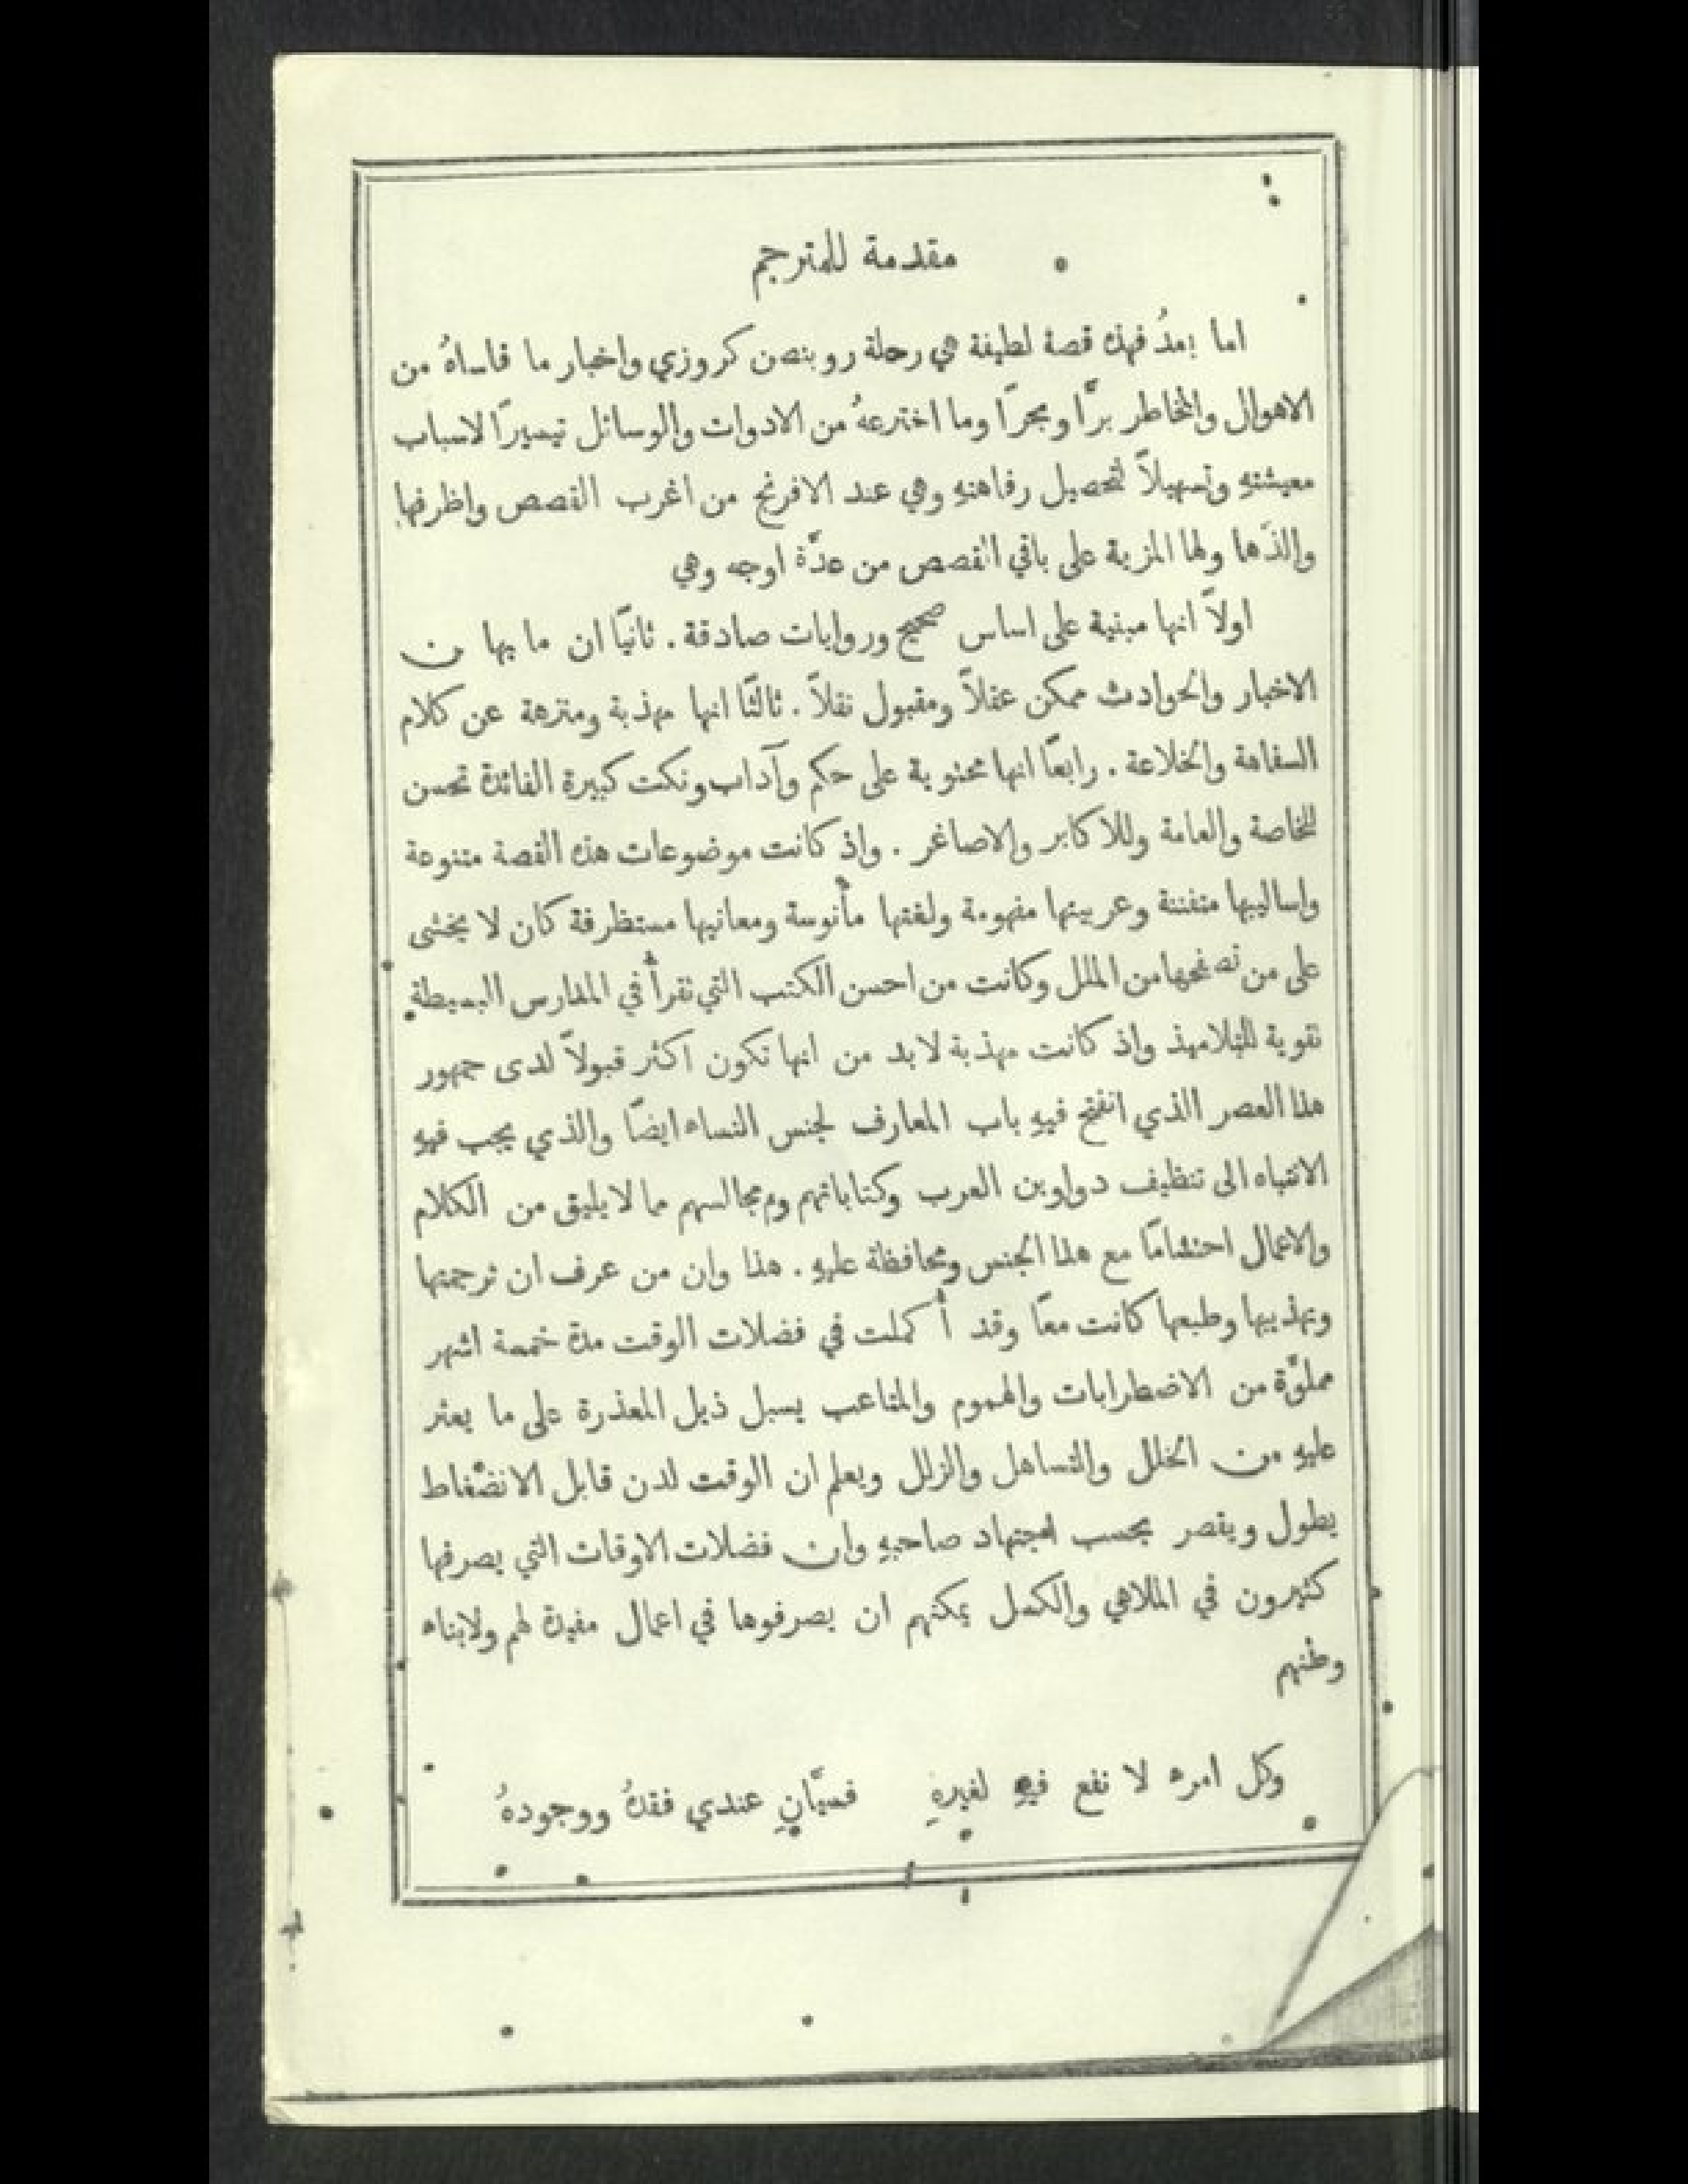 مقدمة للمترجم
اما بعدُ فهذه قصة لطيفة هي رحلة روبنصن كروزي واخبار ما قاساهُ من
الاهوال والمخاطر برًّا وبحرًا وما اخترعهُ من الادوات والوسائل تيسيرًا لاسباب
معيشتهِ وتسهيلاً لتحصيل رفاهتهِ وهي عند الافرنج من اغرب القصص واظرفها
والذّها ولها المزية على باقي القصص من عدَّة اوجه وهي
اولاً انها مبنية على اساس صحيح وروايات صادقة . ثانيًا ان ما بها من
الاخبار والحوادث ممكن عقلاً ومقبول نقلاً . ثالثًا انها مهذبة ومنزهة عن كلام
السفاهة والخلاعة . رابعًا انها محتوية على حكم وآداب ونكت كبيرة الفائدة تحسن
للخاصة والعامة وللاكابر والاصاغر . واذ كانت موضوعات هذه القصة متنوعة
واساليبها متفننة وعربيتها مفهومة ولغتها مأنوسة ومعانيها مستظرفة كان لا يخشى
على من تصفحها من الملل وكانت من احسن الكتب التي تقرأ في المدارس البسيطة
تقوية للتلاميذ واذ كانت مهذبة لا بد من انها تكون اكثر قبولاً لدى جمهور
هذا العصر الذي انفتح فيهِ باب المعارف لجنس النساء ايضًا والذي يجب فيهِ
الانتباه الى تنظيف دواوين العرب وكتاباتهم ومجالسهم مما لا يليق من الكلام
والاعمال احتشامًا مع هذا الجنس ومحافظة عليهِ . هذا وان من عرف ان ترجمتها
وتهذيبها وطبعها كانت معًا وقد أكملت في فضلات الوقت مدة خمسة اشهر
مملوَّة من الاضطرابات والهموم والمتاعب يسبل ذيل المعذرة على ما يعثر
عليهِ من الخلل والتساهل والزلل ويعلم ان الوقت لدن قابل الانضغاط
يطول ويقصر بحسب اجتهاد صاحبهِ وان فضلات الاوقات التي يصرفها
كثيرون في الملاهي والكسل يمكنهم ان يصرفوها في اعمال مفيدة لهم ولابناء
وطنهم
وكل امرء لا نفع فيهِ لغيرهِ فسيَّانِ عندي فقدهُ ووجودهُ